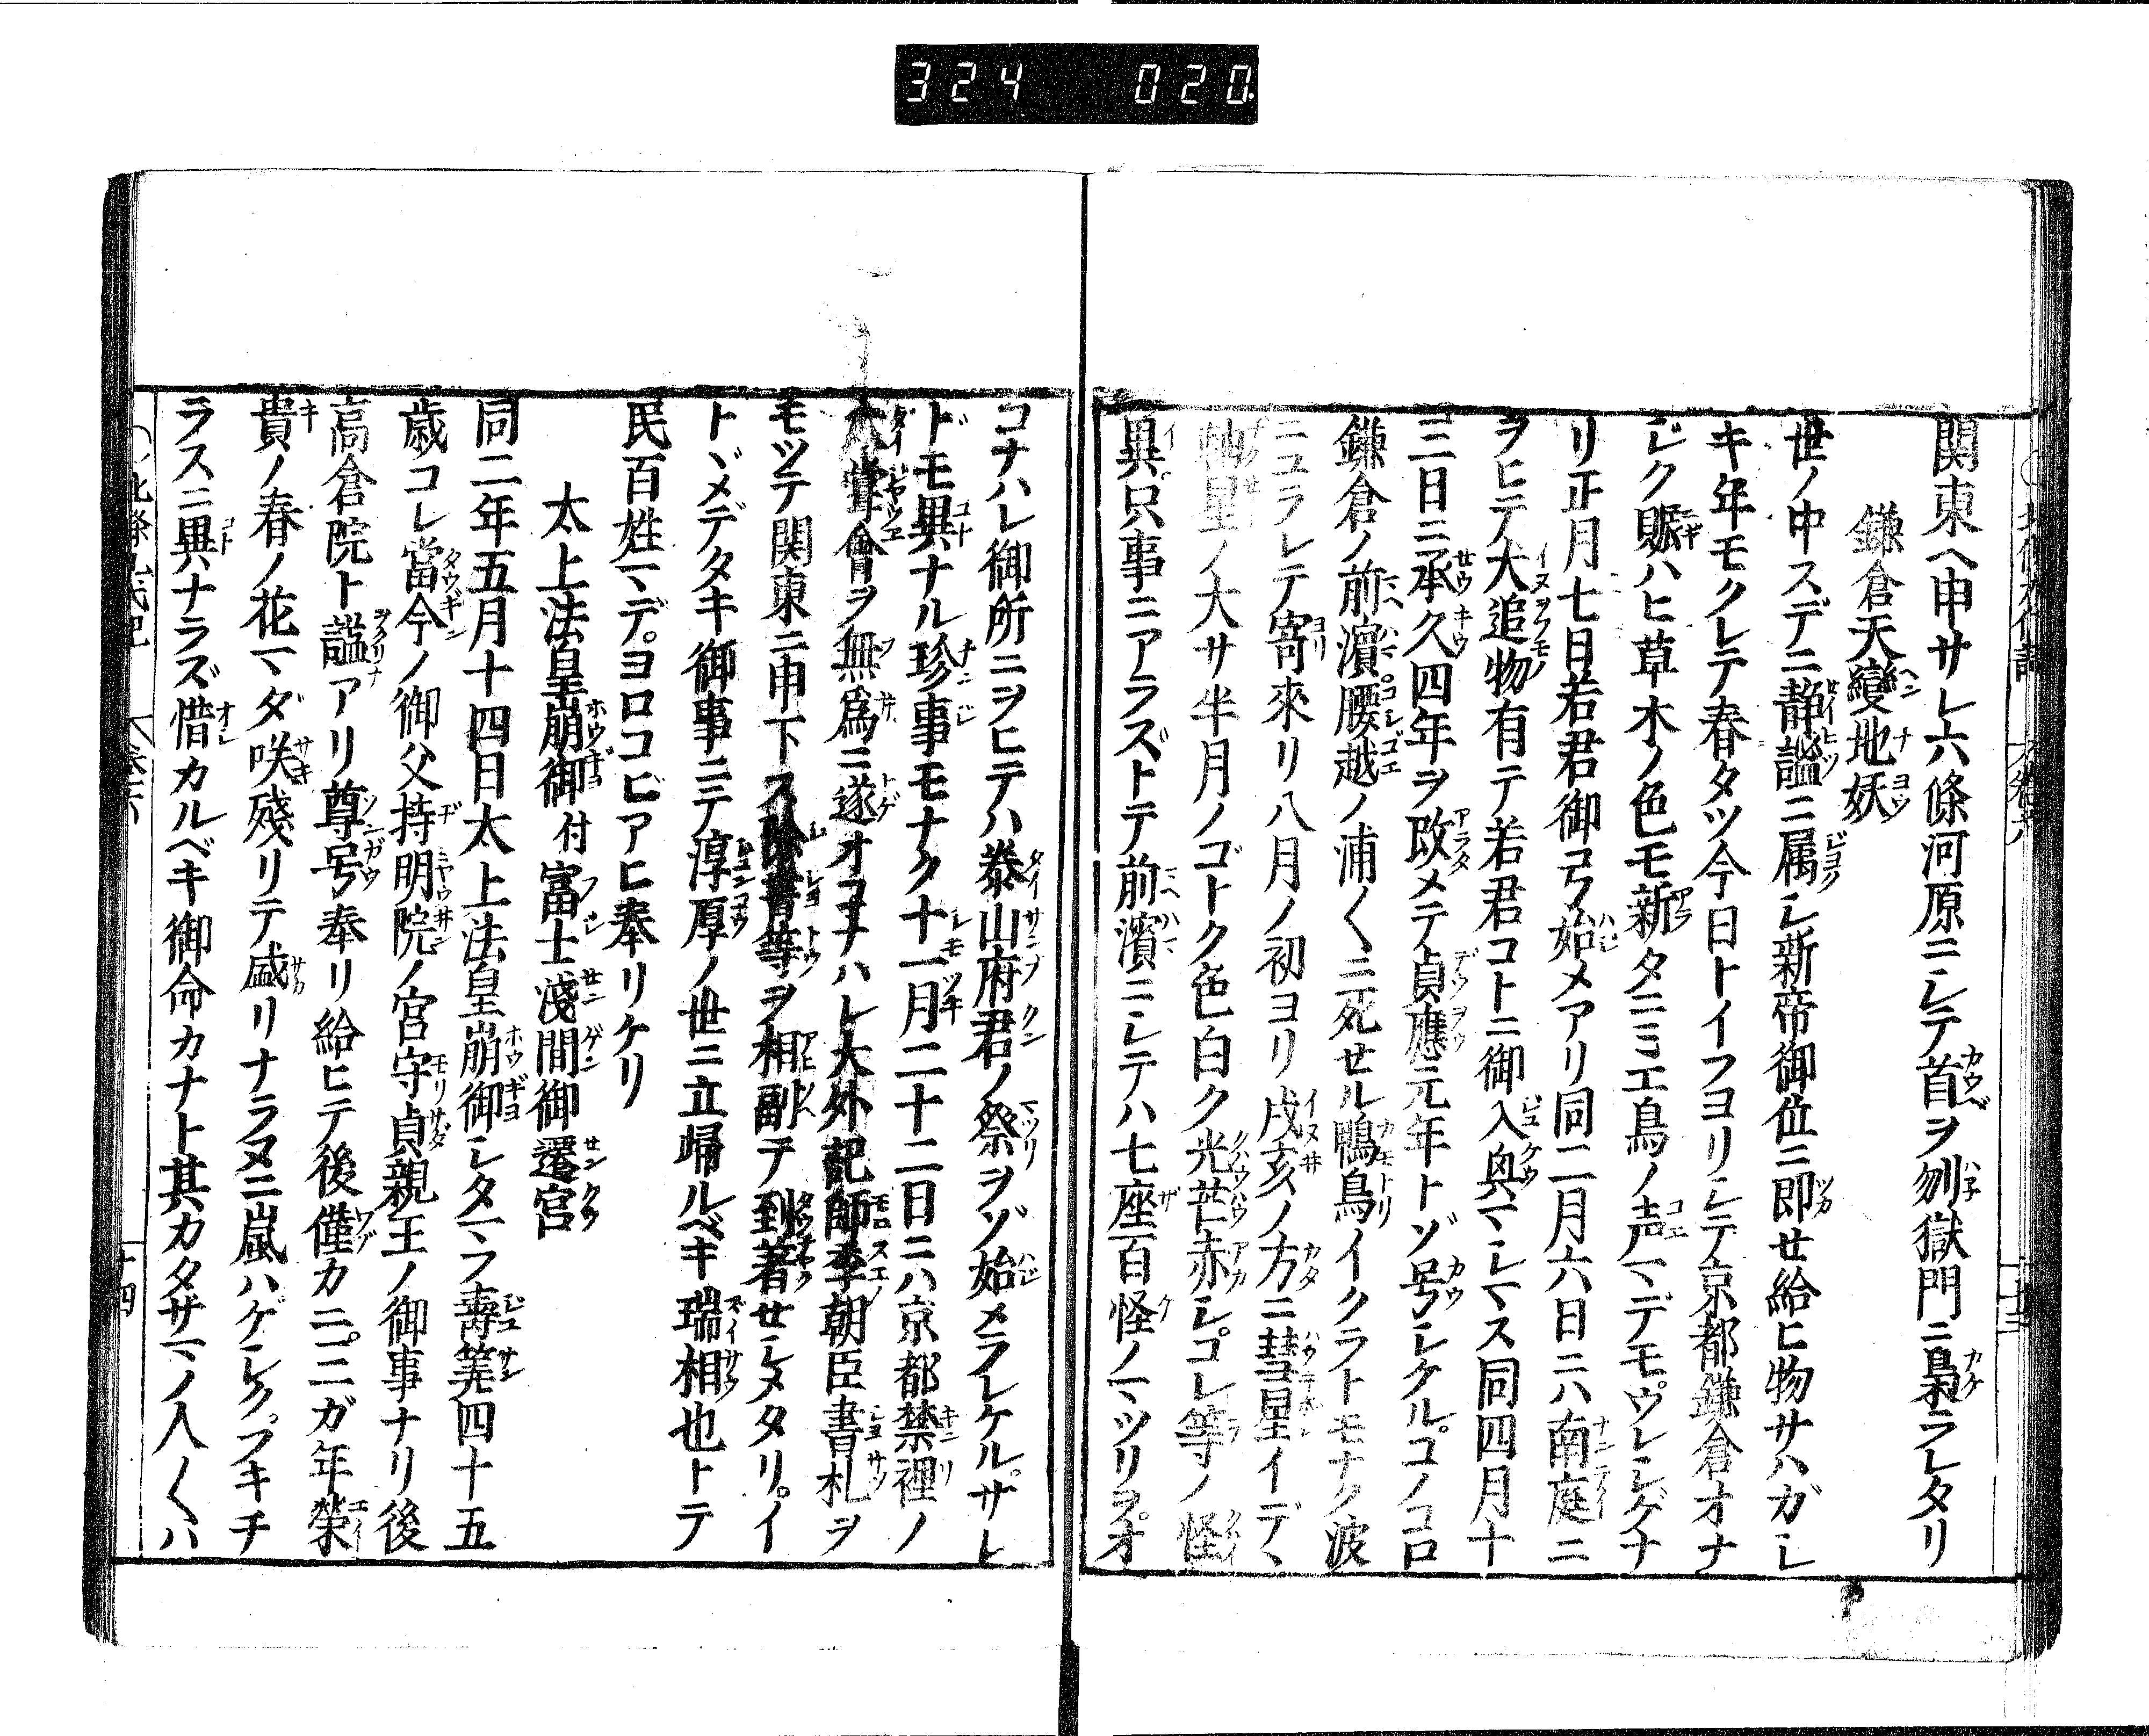 324 020
関東ヘ申サレ六條河原ニシテ首ヲ刎獄門ニ梟ラレタリ
鎌倉天變地妖
世ノ中スデニ静謐ニ属シ新帝御位ニ即せ給ヒ物サハガシ
キ年モクレテ春タツ今日トイフヨリシテ京都鎌倉オナ
ジク賑ハヒ草木ノ色モ新タニミエ鳥ノ声マデモウレシゲナ
リ正月七日若君御弓ノ始メアリ同二月六日ニハ南庭ニ
ヲヒテ犬追物有テ若君コトニ御入興マシマス同四月十
三日ニ承久四年ヲ改メテ貞應元年トゾ号シケル。コノコロ
鎌倉ノ前濱。腰越ノ浦〱ニ死せル鴨鳥イクラトモナク波
ニユラレテ寄來リ八月ノ初ヨリ戌亥ノ方ニ彗星イデヽ
軸星ノ大サ半月ノゴトク色白ク光芒赤シ。コレ等ノ怪
異。只事ニアラズトテ前濱ニシテハ七座百怪ノマツリヲ。オ
コナハレ御所ニヲヒテハ泰山府君ノ祭ヲゾ始メラレケル。サレ
ドモ異ナル珍事モナク十一月二十二日ニハ京都禁裡ノ
大嘗會ヲ無爲ニ遂オコナハレ大外記師季朝臣書札ヲ
モツテ関東ニ申下ス除書等ヲ相副テ到著せシタタリ。イ
トヾメデタキ御事ニテ淳厚ノ世ニ立歸ルベキ瑞相也トテ
民百姓マデ。ヨロコビアヒ奉リケリ
太上法皇崩御付富士淺間御遷宮
同二年五月十四日太上法皇崩御シタマフ壽筭四十五
歳コレ當今ノ御父持明院ノ宮守貞親王ノ御事ナリ後
高倉院ト謚アリ尊号奉リ給ヒテ後僅カニ。二ガ年榮
貴ノ春ノ花マダ咲殘リテ盛リナラヌニ嵐ハゲシク。フキチ
ラスニ異ナラズ惜カルベキ御命カナト其カタサマノ人〱ハ
十四